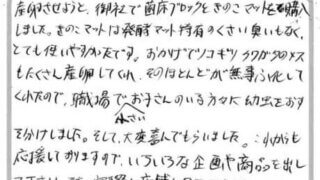 産卵させようと、御社で菌床ブロックときのこマットを購入
しました。きのこマットは発酵マット特有のくさい臭いもなく、
とても使いやすかったです。おかげでノコギリクワガタのメス
もたくさん産卵してくれ、そのほとんどが無事ふ化して
くれたので、職場で小さいお子さんのいる方々に幼虫をおす
そ分けしました。そして、大変喜んでもらいました。これからも
応援しておりますので、いろいろな企画や商品を出し